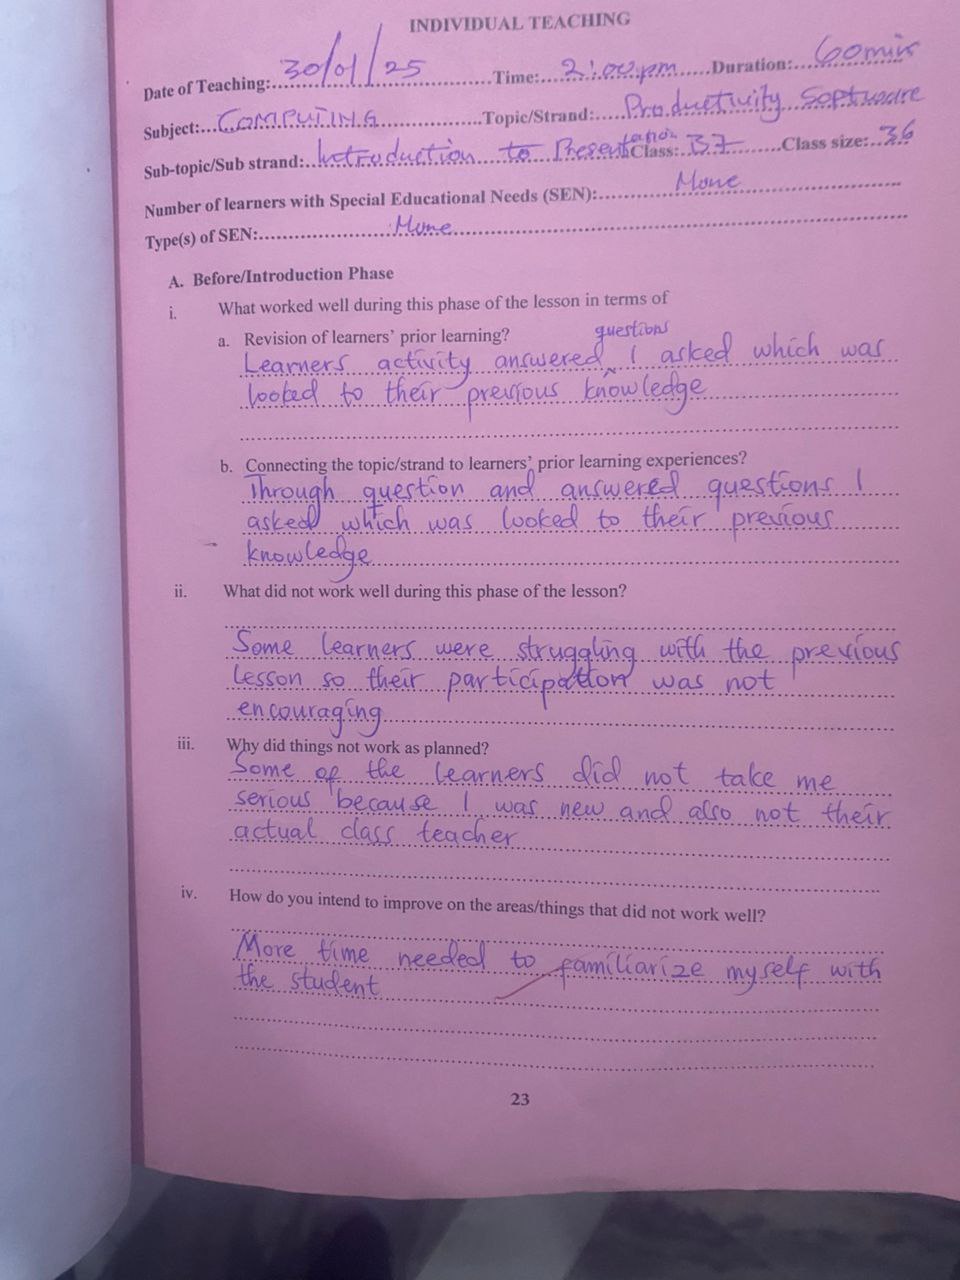 INDIVIDUAL TEACHING
Date of Teaching: 30/01/25 Time: 2:00pm Duration: 60mins
Subject: COMPUTING Topic/Strand: Productivity Software
Sub-topic/Sub strand: Introduction to Presentation Class: B7 Class size: 36
Number of learners with Special Educational Needs (SEN): None
Type(s) of SEN: None
A. Before/Introduction Phase
i. What worked well during this phase of the lesson in terms of
a. Revision of learners' prior learning?
questions
Learners activity answered ^ I asked which was
looked to their previous knowledge
b. Connecting the topic/strand to learners' prior learning experiences?
Through question and answered questions I
asked which was looked to their previous
knowledge
ii. What did not work well during this phase of the lesson?
Some learners were struggling with the previous
lesson so their participation was not
encouraging
iii. Why did things not work as planned?
Some of the learners did not take me
serious because I was new and also not their
actual class teacher
iv. How do you intend to improve on the areas/things that did not work well?
More time needed to familiarize myself with
the student
23